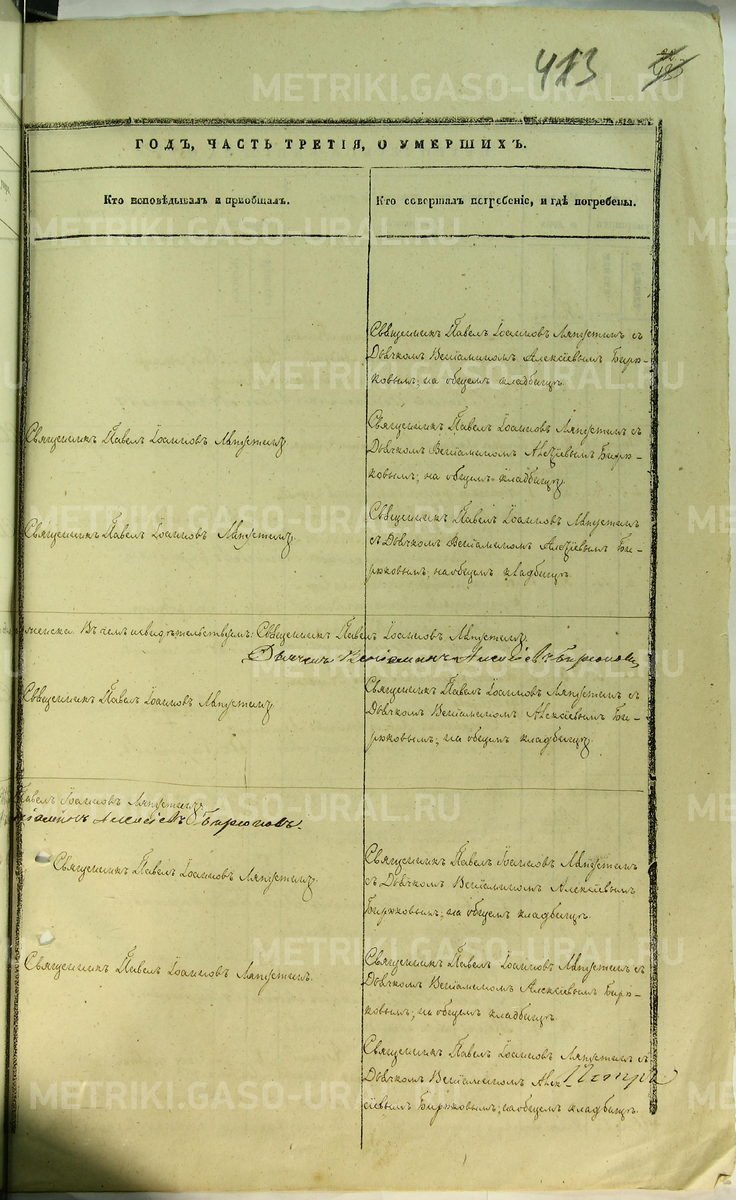 413
ГОДЪ, ЧАСТЬ ТРЕТІЯ, О УМЕРШИХЪ.
Кто исповѣдывалъ и пріобщалъ.
Кто совершалъ погребеніе, и гдѣ погребены.
Священникъ Павелъ Іоанновъ Ляпустинъ съ
Дьячкомъ Веніаминомъ Алексіевымъ Бирю-
ковымъ; на общемъ кладбищѣ.
Священникъ Павелъ Іоанновъ Ляпустинъ
Священникъ Павелъ Іоанновъ Ляпустинъ съ
Дьячкомъ Веніаминомъ Алексіевымъ Бирю-
ковымъ; на общемъ кладбищѣ.
Священникъ Павелъ Іоанновъ Ляпустинъ
Священникъ Павелъ Іоанновъ Ляпустинъ
съ Дьячкомъ Веніаминомъ Алексіевымъ Би-
рюковымъ; на общемъ кладбищѣ.
В чемъ и свидѣтельствуемъ: Священникъ Павелъ Іоанновъ Ляпустинъ
Дьячекъ Веніаминъ Алексіевъ Бирюковъ
Священникъ Павелъ Іоанновъ Ляпустинъ
Священникъ Павелъ Іоанновъ Ляпустинъ съ
Дьячкомъ Веніаминомъ Алексіевымъ Би-
рюковымъ; на общемъ кладбищѣ.
Павелъ Іоанновъ Ляпустинъ
Алексіевъ Бирюковъ.
Священникъ Павелъ Іоанновъ Ляпустинъ
Священникъ Павелъ Іоанновъ Ляпустинъ
съ Дьячкомъ Веніаминомъ Алексіевымъ
Бирюковымъ; на общемъ кладбищѣ.
Священникъ Павелъ Іоанновъ Ляпустинъ.
Священникъ Павелъ Іоанновъ Ляпустинъ съ
Дьячкомъ Веніаминомъ Алексіевымъ Бирю-
ковымъ; на общемъ кладбищѣ.
Священникъ Павелъ Іоанновъ Ляпустинъ съ
Дьячкомъ Веніаминомъ Алек-
сіевымъ Бирюковымъ; на общемъ кладбищѣ.
METRIKI.GASO-URAL.RU